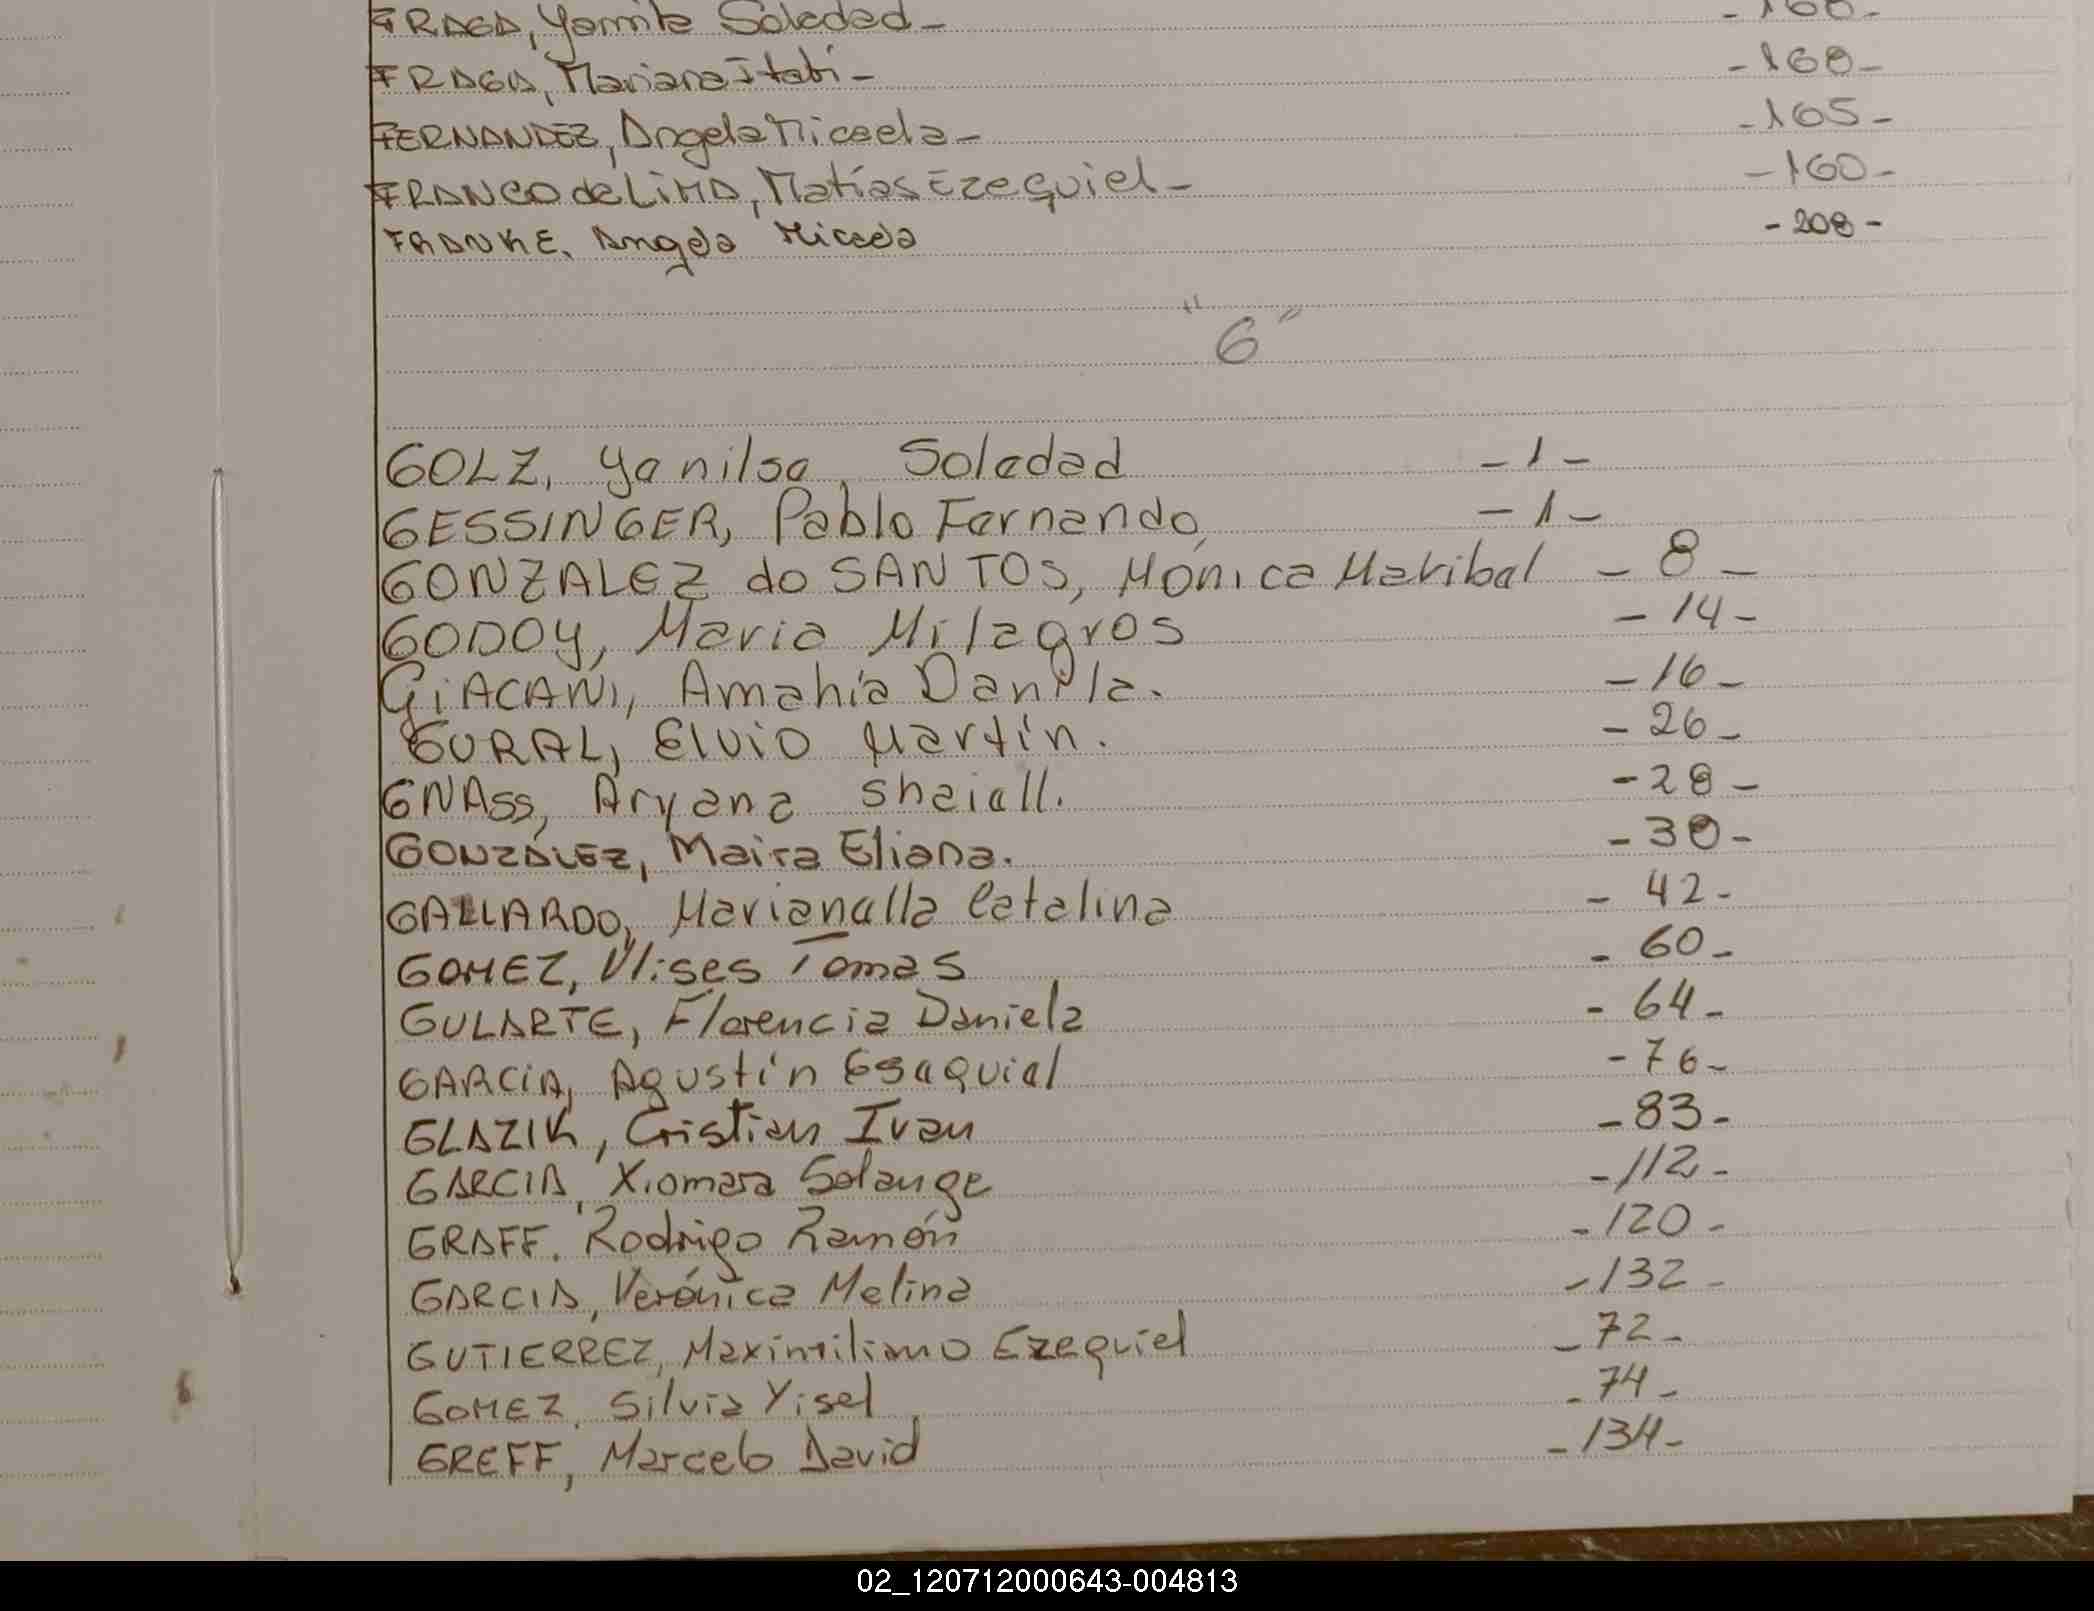 FRAGA, Yamila Soledad - - 160 -
FRAGA, Mariana Itatí - - 160 -
FERNANDEZ, Angela Micaela - - 165 -
FRANCO de LIMA, Matías Ezequiel - - 160 -
FRANKE, Angela Micaela - 208 -
"G"
GOLZ, Yanilsa Soledad - 1 -
GESSINGER, Pablo Fernando - 1 -
GONZALEZ do SANTOS, Mónica Maribel - 8 -
GODOY, Maria Milagros - 14 -
GIACANI, Amahía Danila. - 16 -
GURAL, Elvio Martín. - 26 -
GNASS, Aryana Sheiell. - 28 -
GONZÁLEZ, Maira Eliana. - 30 -
GALLARDO, Marianella Catalina - 42 -
GOMEZ, Ulises Tomas - 60 -
GULARTE, Florencia Daniela - 64 -
GARCIA, Agustín Esequiel - 76 -
GLAZIK, Cristian Ivan - 83 -
GARCIA, Xiomara Solange - 112 -
GRAFF, Rodrigo Ramón - 120 -
GARCIA, Verónica Melina - 132 -
GUTIERREZ, Maximiliano Ezequiel - 72 -
GOMEZ, Silvia Yisel - 74 -
GREFF, Marcelo David - 134 -
02_120712000643-004813